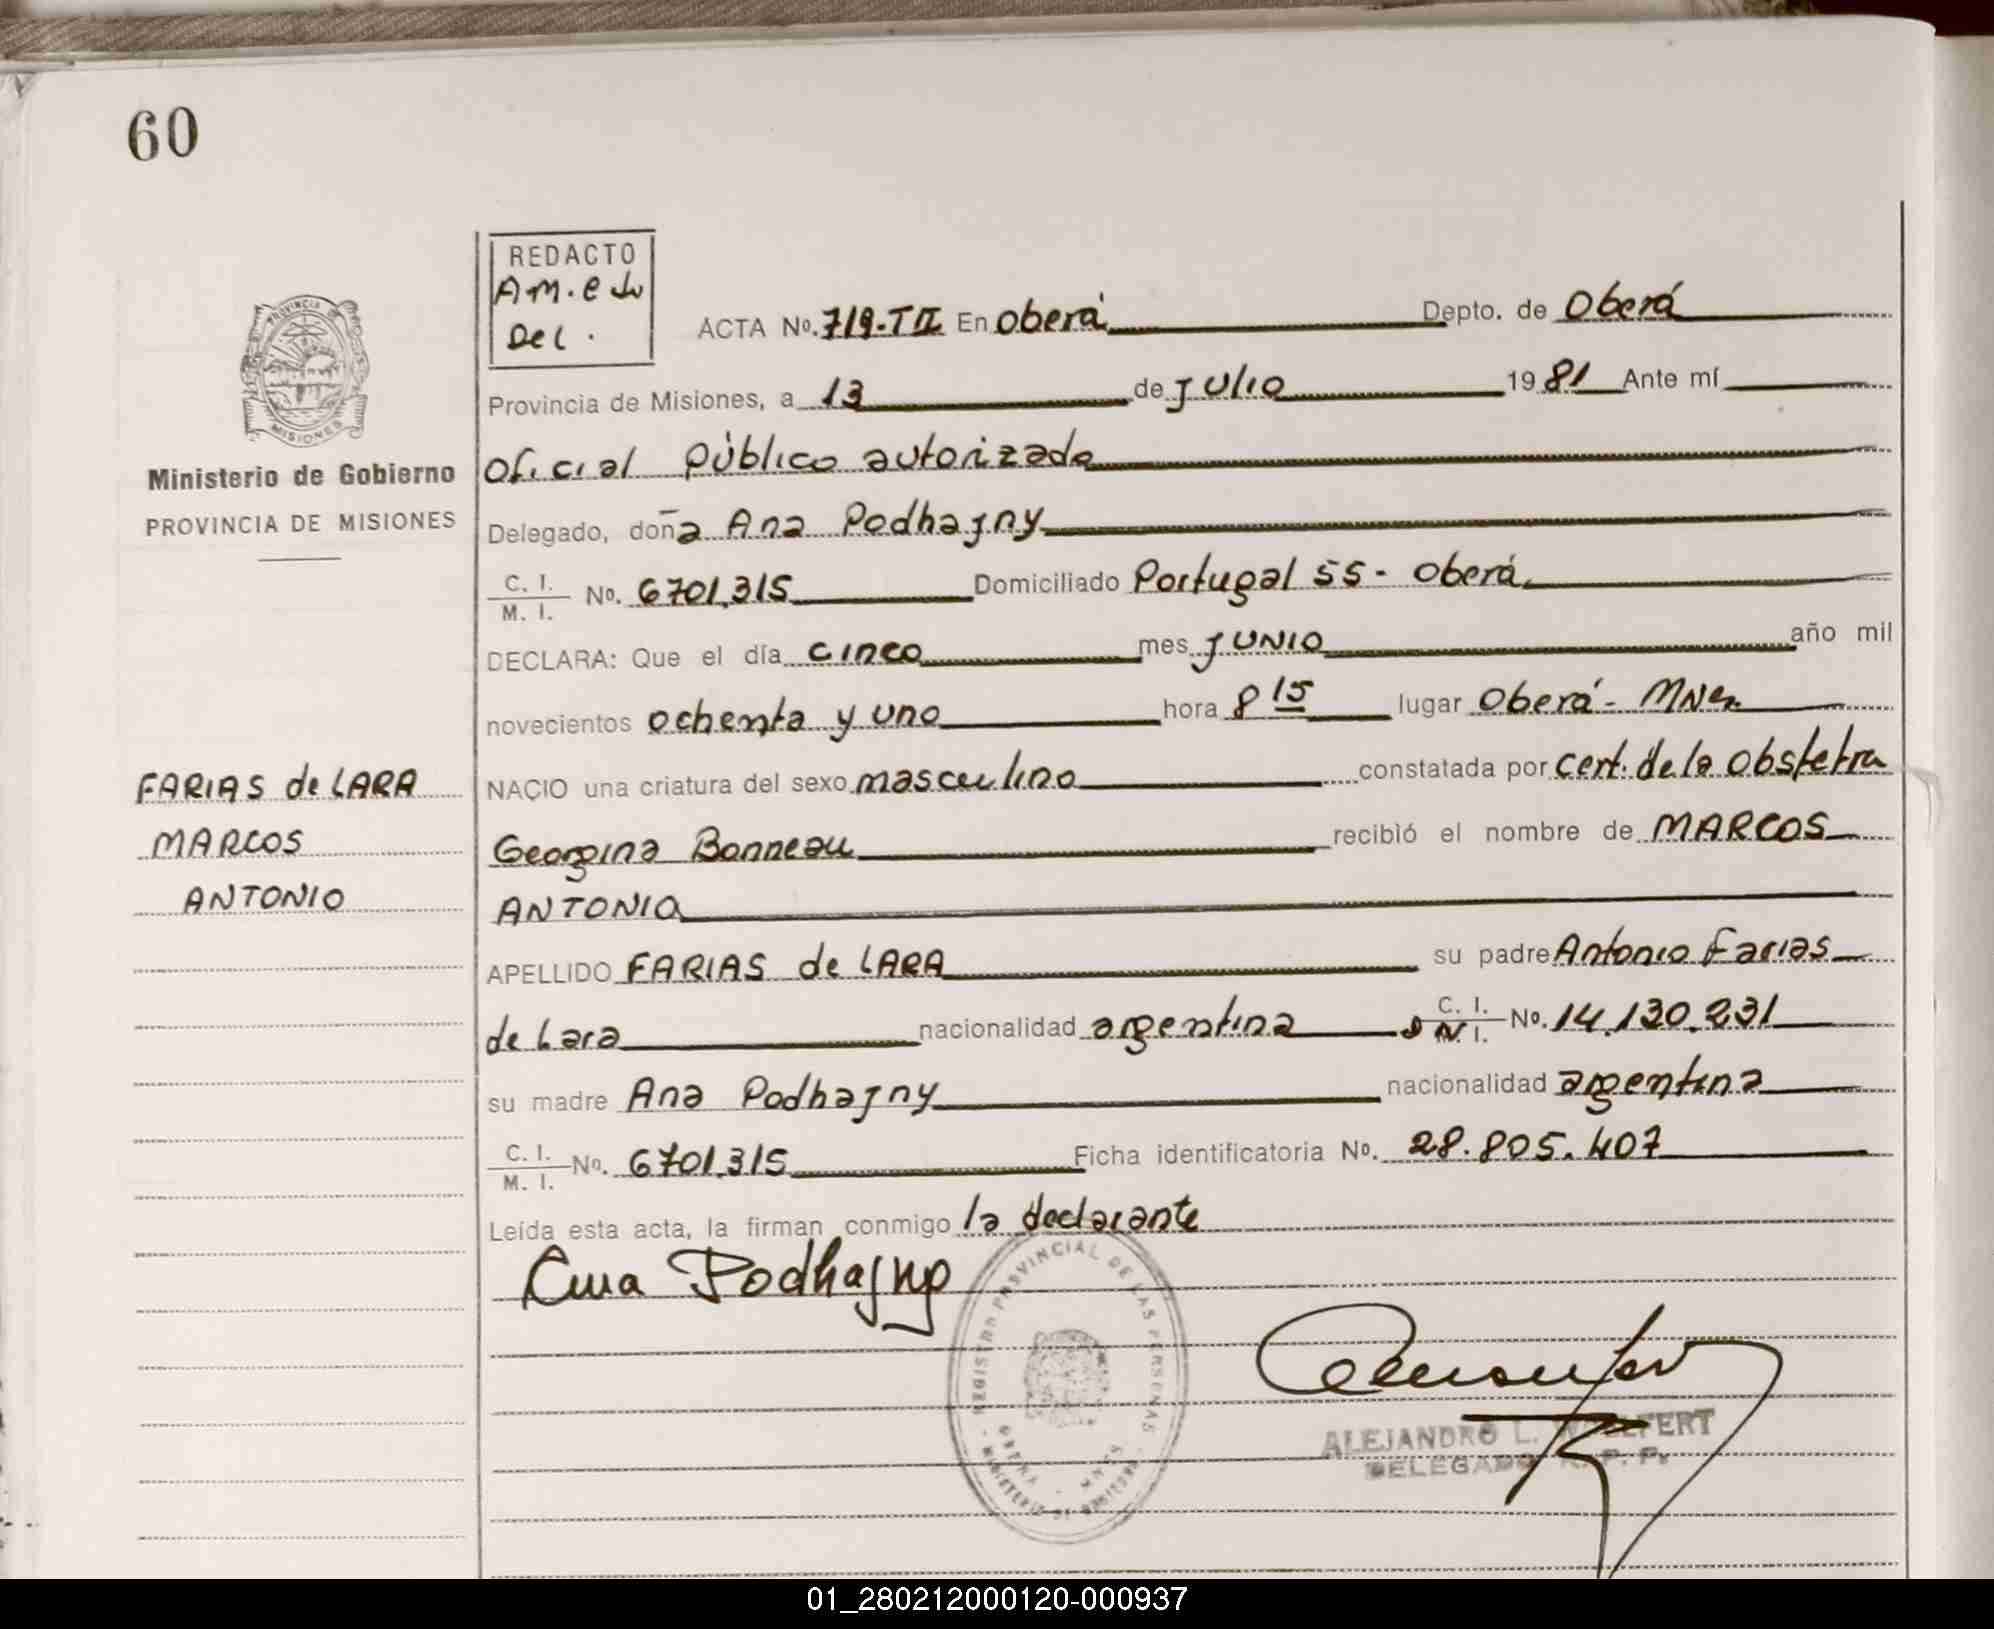 60
REDACTO
Del.
ACTA No. 719-TII En Oberá Depto. de Oberá
Provincia de Misiones, a 13 de Julio 1981 Ante mí
Oficial Público autorizado
Delegado, doña Ana Podhajny
C. I.
M. I.
No. 6701.315 Domiciliado Portugal 55 - Oberá
DECLARA: Que el día cinco mes JUNIO año mil
novecientos ochenta y uno hora 8 15 lugar Oberá - MNes
NACIO una criatura del sexo masculino constatada por cert. de la obstetra
Georgina Bonneau recibió el nombre de MARCOS
ANTONIO
APELLIDO FARIAS de LARA su padre Antonio Farias
de Lara nacionalidad argentina C. I. D N. I. No. 14.130.231
su madre Ana Podhajny nacionalidad argentina
C. I.
M. I.
No. 6701.315 Ficha identificatoria No. 28.805.407
Leída esta acta, la firman conmigo la declarante
Ana Podhajny
PROVINCIA
MISIONES
Ministerio de Gobierno
PROVINCIA DE MISIONES
FARIAS de LARA
MARCOS
ANTONIO
REGISTRO PROVINCIAL DE LAS PERSONAS
OBERA - MNES
MINISTERIO DE GOBIERNO
ALEJANDRO L. WOLFERT
DELEGADO R. P. P.
01_280212000120-000937